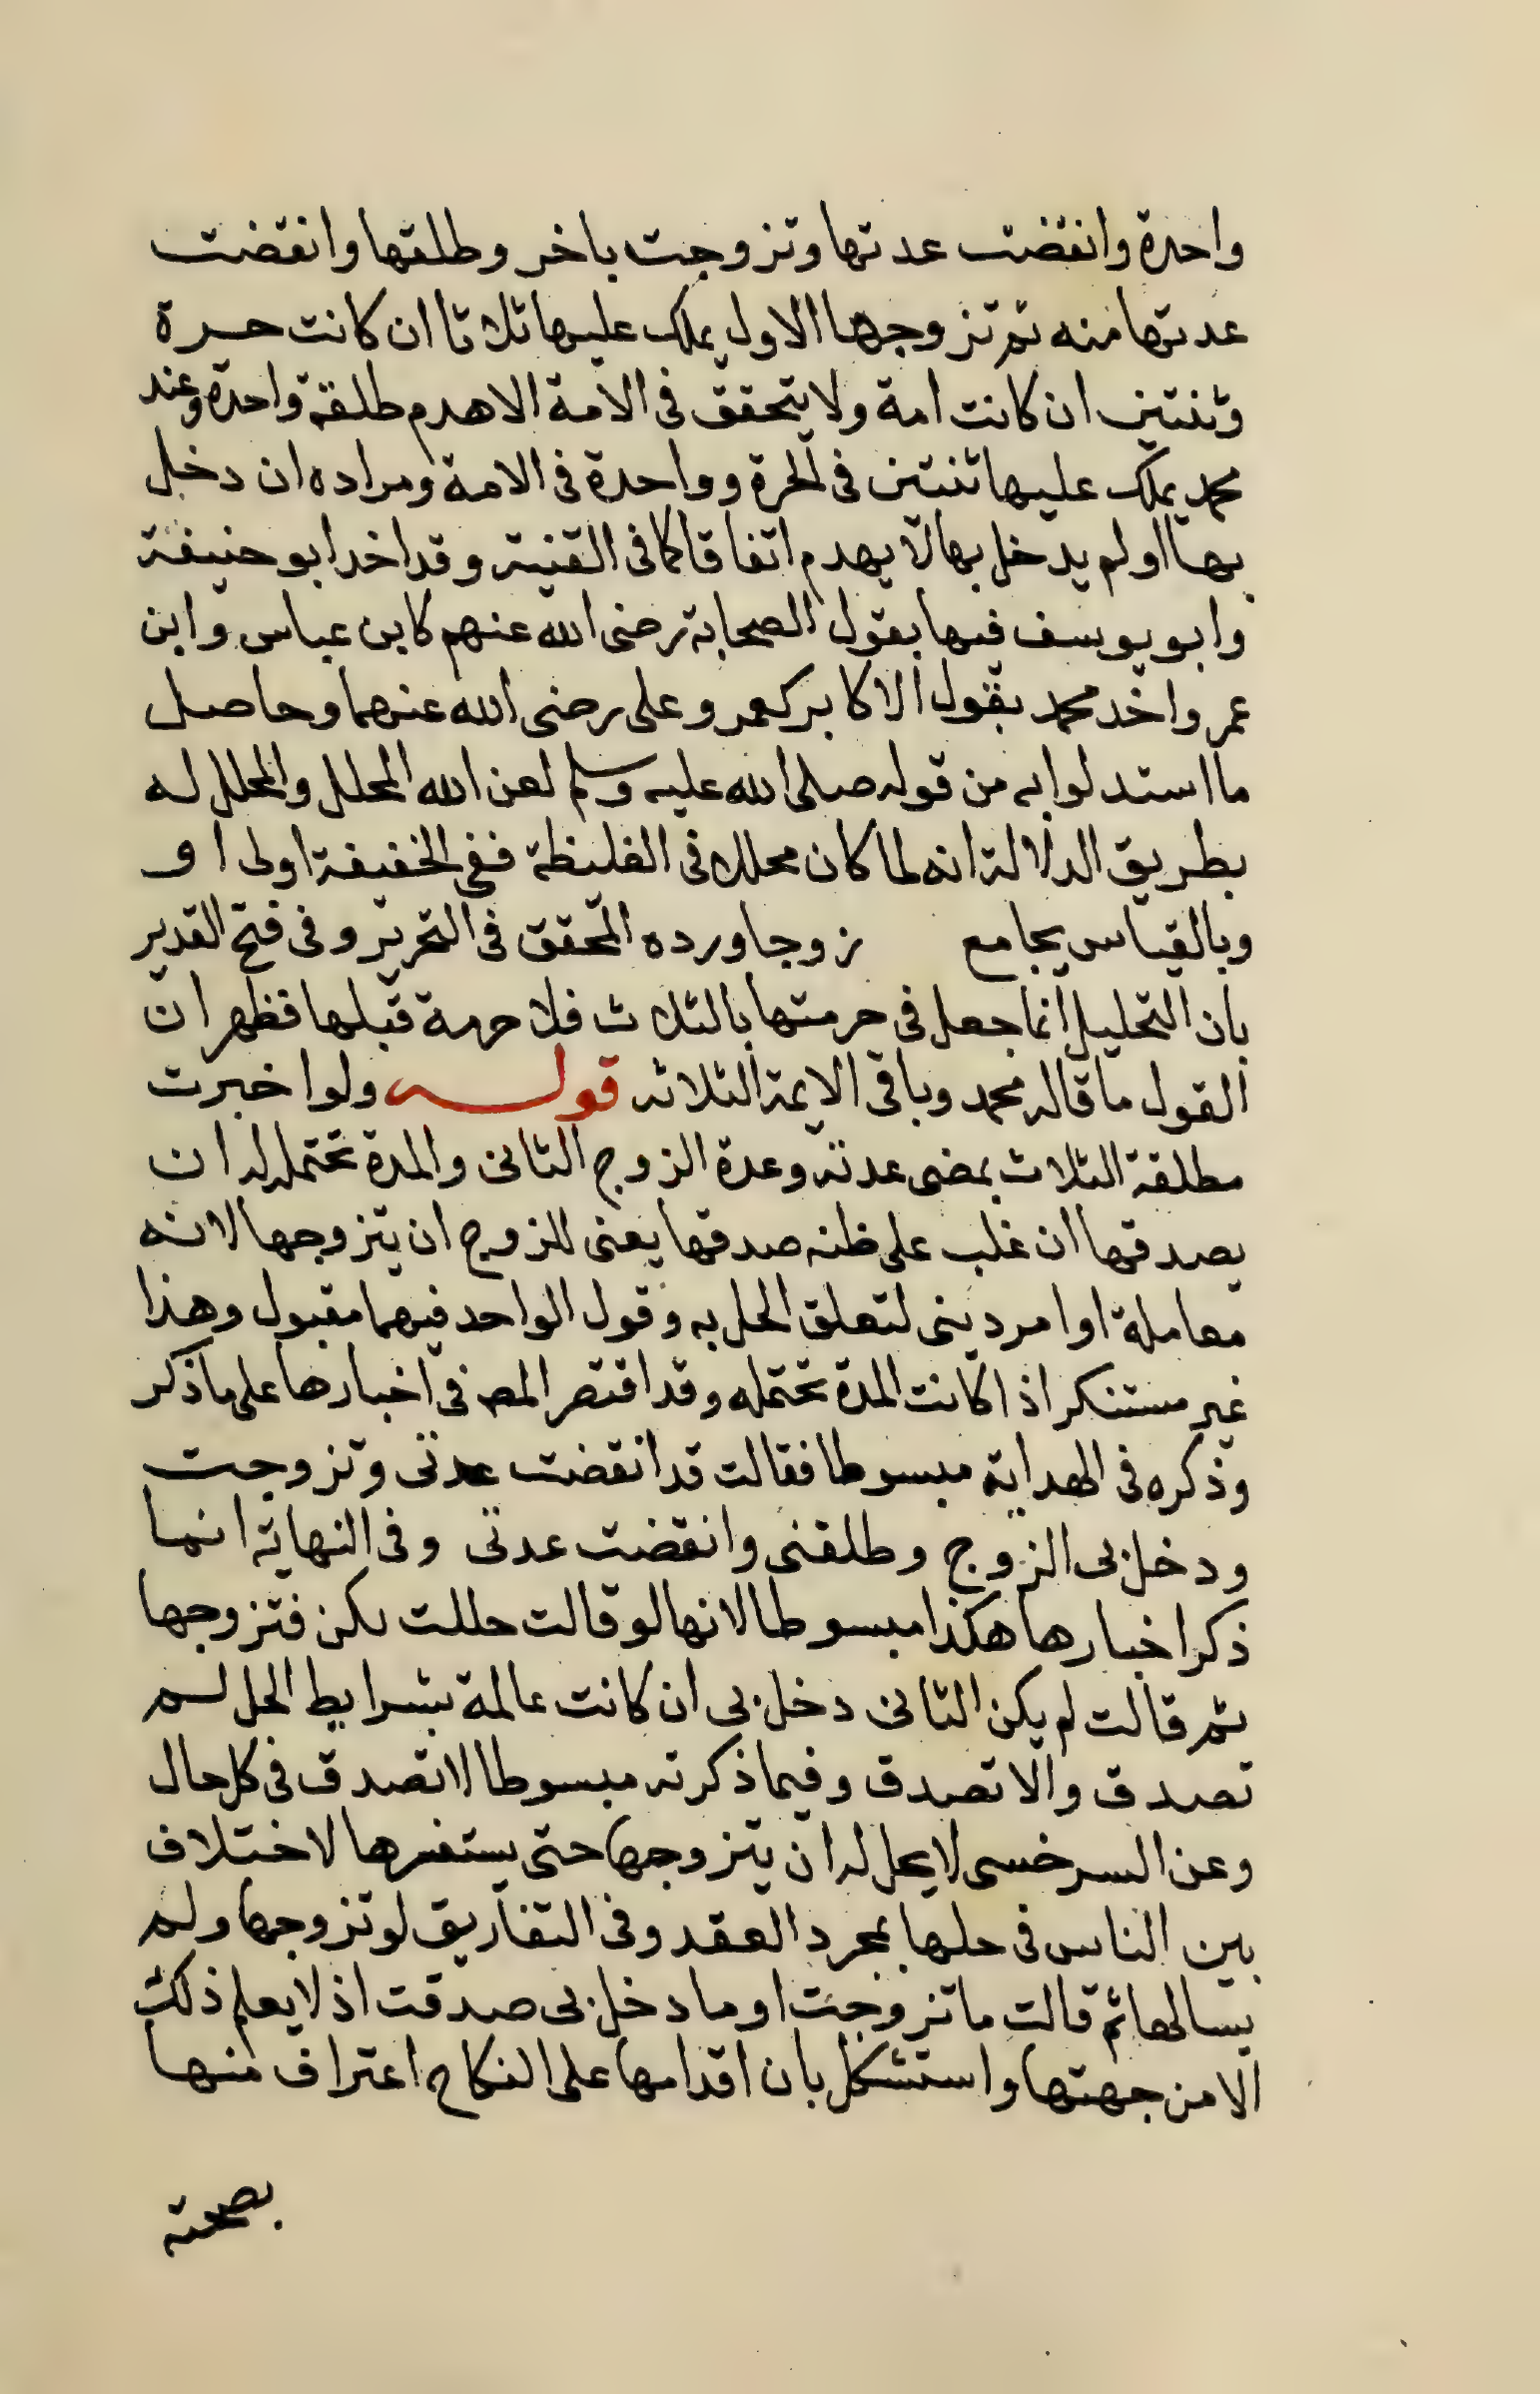 واحدة وانقضت عدتها وتزوجت باخر وطلقها وانقضت
عدتها منه ثم تزوجها الاول يملك عليها ثلاثا ان كانت حرة
وثنتين ان كانت امة ولا يتحقق فى الامة الا هدم طلقة واحدة وعند
محمد يملك عليها ثنتين فى الحرة وواحدة فى الامة ومراده ان دخل
بها اولم يدخل بها لا يهدم اتفاقا كما فى القنية وقد اخد ابو حنيفة
وابو يوسف فيها بقول الصحابة رضى الله عنهم كابن عباس وابن
عمر واخد محمد بقول الاكابر كعمر وعلى رضى الله عنهما وحاصل
ما استدلوا به من قوله صلى الله عليه وسلم لعن الله المحلل والمحلل له
بطريق الدلالة انه لما كان محللا فى الغليظة ففى الخفيفة اولى او
وبالقياس بجامع زوجا ورده المحقق فى التحرير وفى فتح القدير
بان التحليل انما جعل فى حرمتها بالثلاث فلا حرمة قبلها فظهر ان
القول ما قاله محمد وباقى الايمة الثلاثه قوله ولو اخبرت
مطلقة الثلاث بمضى عدته وعدة الزوج الثانى والمدة تحتمله له ان
يصدقها ان غلب على ظنه صدقها يعنى للزوج ان يتزوجها لانه
معاملة او امر دينى لتعلق الحل به وقول الواحد فيهما مقبول وهذا
غير مستنكر اذا كانت المدة تحتمله وقد اقتصر المص فى اخبارها على ما ذكر
وذكره فى الهداية مبسوطا فقالت قد انقضت عدتى وتزوجت
ودخل بى الزوج وطلقنى وانقضت عدتى وفى النهاية انما
ذكر اخبارها هكذا مبسوطا لانها لو قالت حللت لكن فتزوجها
ثم قالت لم يكن الثانى دخل بى ان كانت عالمة بشرايط الحل لم
تصدق والا تصدق وفيما ذكرته مبسوطا لا تصدق فى كل حال
وعن السرخسى لا يحل له ان يتزوجها حتى يستفسرها لاختلاف
بين الناس فى حلها بمجرد العقد وفى التفاريق لو تزوجها ولم
يسالها ثم قالت ما تزوجت او ما دخل بى صدقت اذ لا يعلم ذلك
الا من جهتها واستشكل بان اقدامها على النكاح اعتراف منها
بصحته